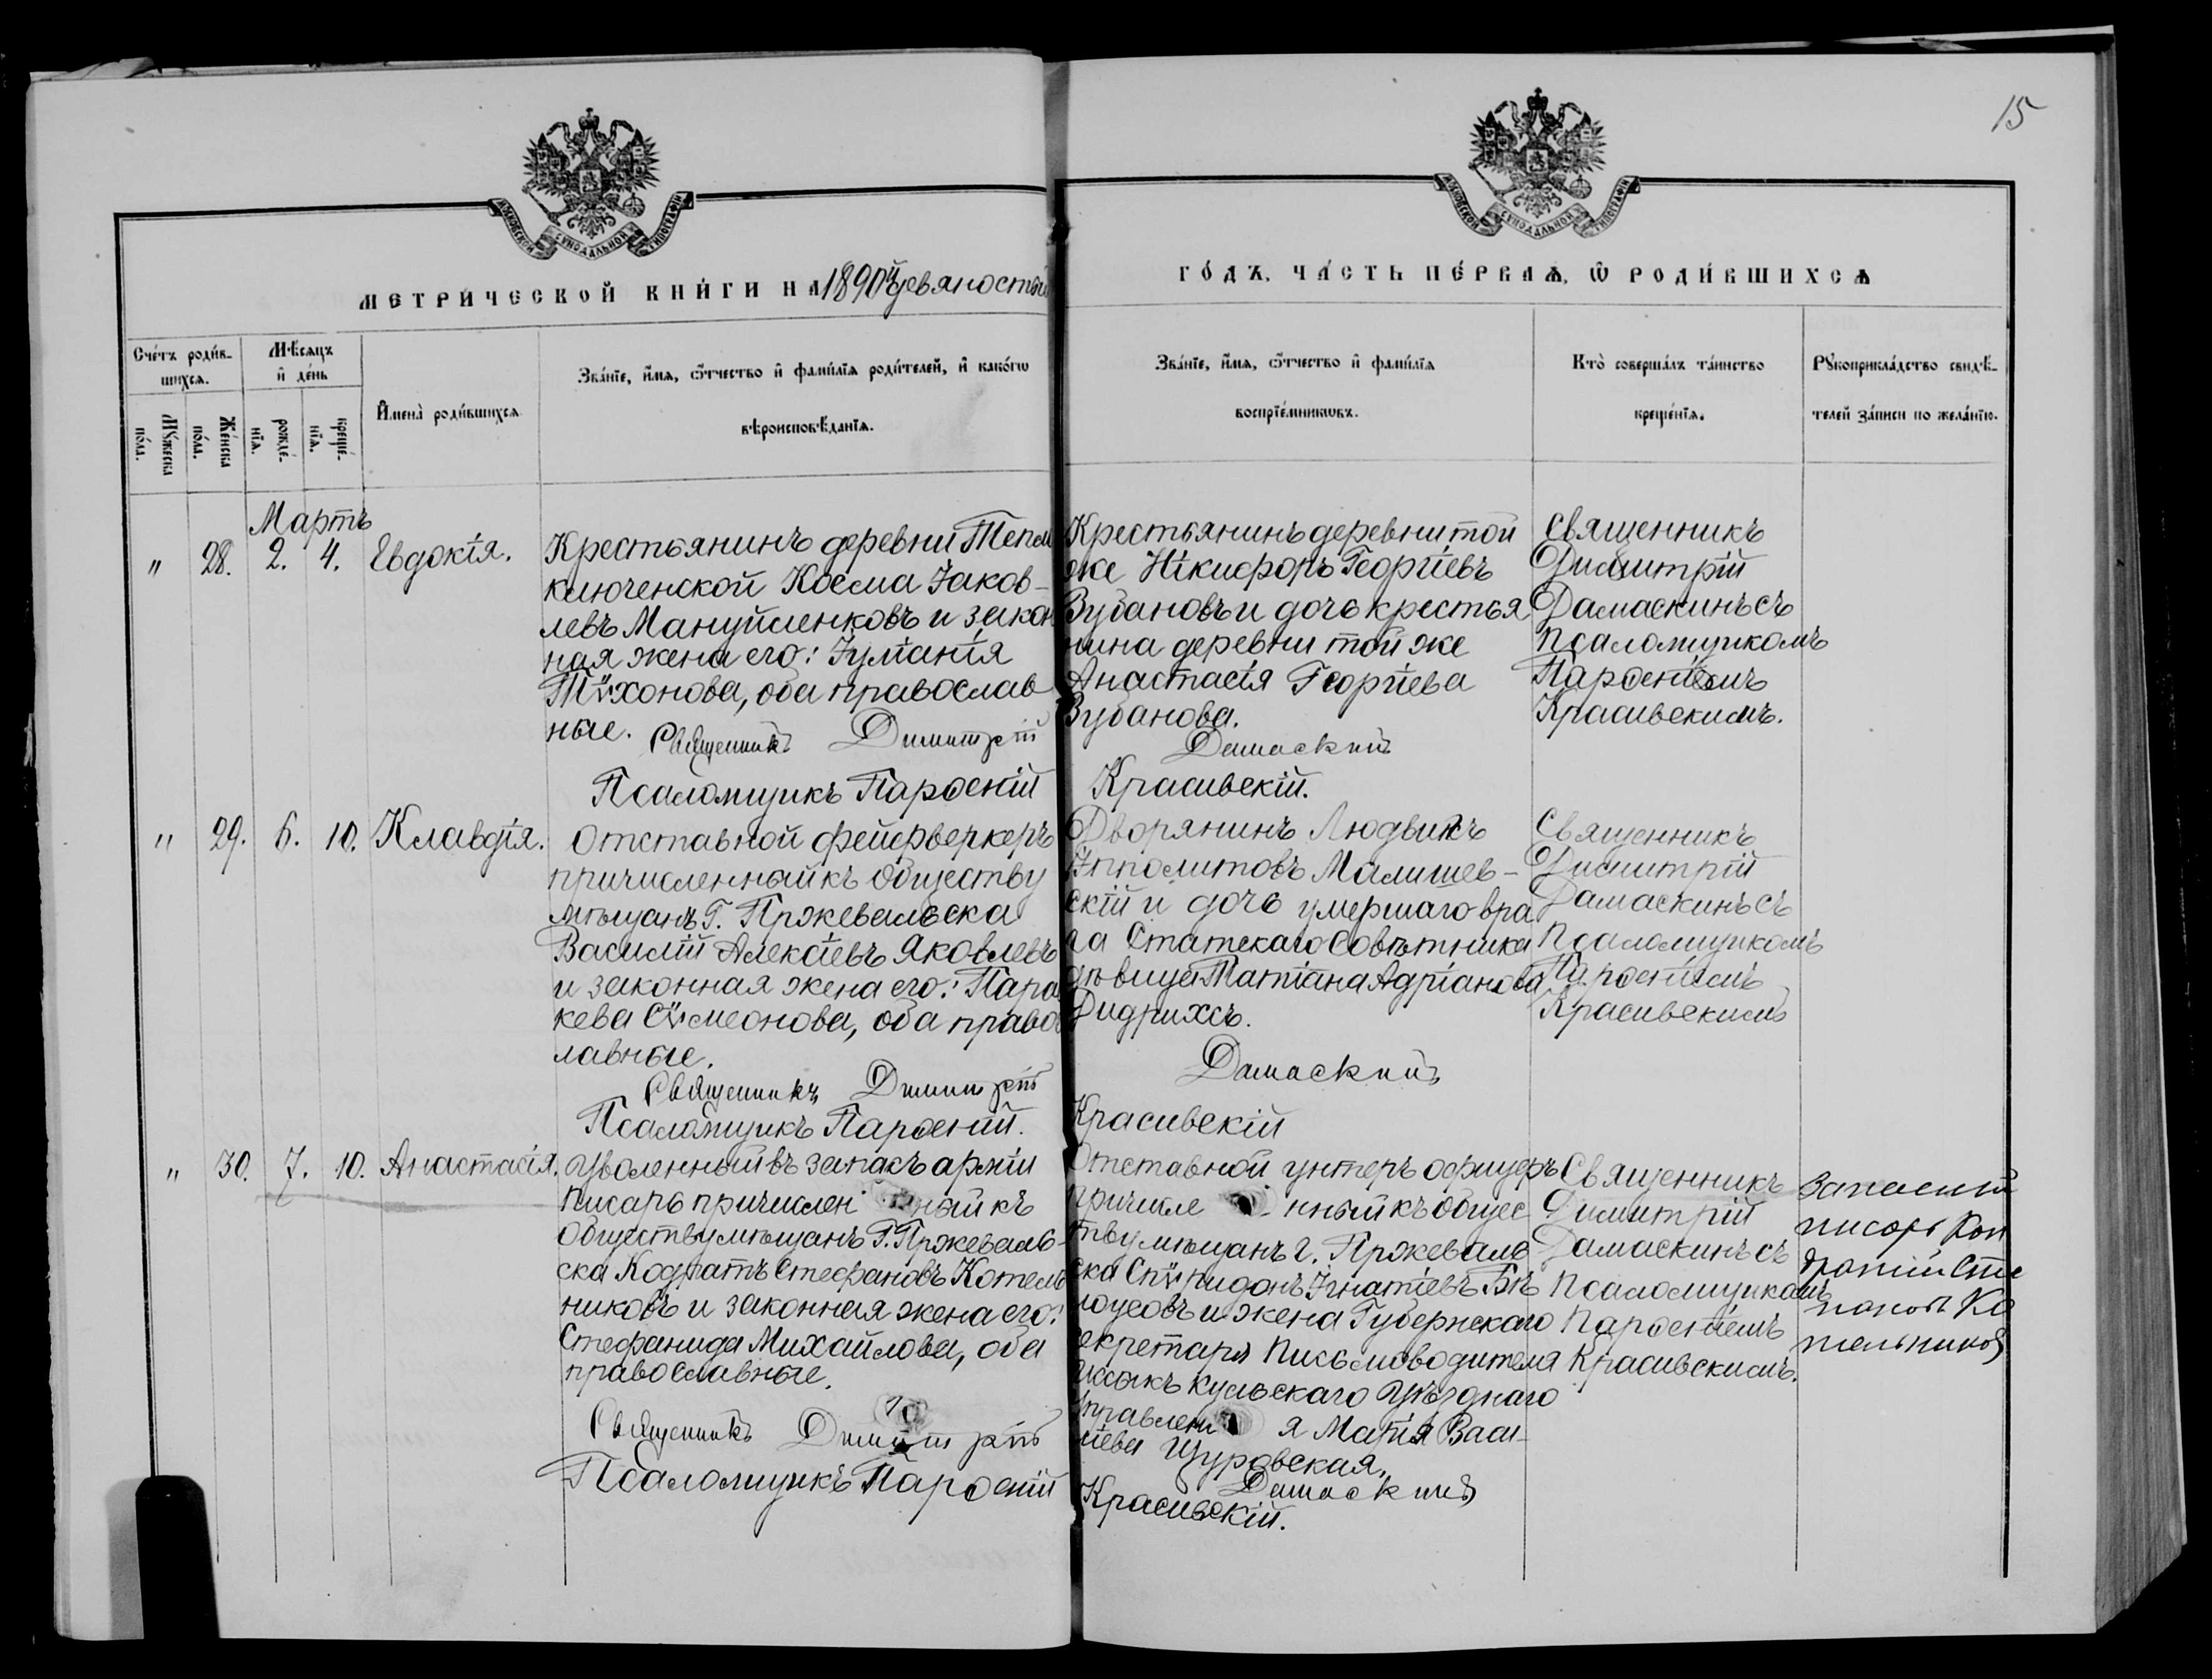 15
МОСКОВСКОЙ СѴНОДАЛЬНОЙ ТИПОГРАФІИ
МОСКОВСКОЙ СѴНОДАЛЬНОЙ ТИПОГРАФІИ
МЕТРИ́ЧЕСКОЙ КНИ́ГИ НА 1890й девяностый
ГО́ДЪ, ЧА́СТЬ ПЕ́РВАѦ, Ѡ РОДИ́ВШИХСѦ
Сче́тъ роди́в-
шихсѧ.
Мѣ́сѧцъ
и҆ де́нь
Мꙋ́жеска
по́ла.
Же́нска
по́ла.
рожде́-
нїѧ.
креще́-
нїѧ.
И҆мена̀ роди́вшихсѧ
Зва́нїе, и҆́мѧ, ѻ҆́тчество и҆ фами́лїѧ роди́телей, и҆ како́гѡ
вѣроисповѣ́данїѧ.
Зва́нїе, и҆́мѧ, ѻ҆́тчество и҆ фами́лїѧ
воспрїе́мникѡвъ.
Кто̀ соверша́лъ та́инство
креще́нїѧ.
Рꙋкоприкла́дство свидѣ́-
телей за́писи по жела́нїю.
Мартъ
" 28. 2. 4. Евдокія.
Крестьянинъ деревни Тепло
ключенской Косма Іаков-
левъ Мануйленковъ и закон
ная жена его: Іуліанія
Тѵхонова, оба православ
ные.
Священникъ Димитрій
Псаломщикъ Парѳеній
Крестьянинъ деревни той
же Никифоръ Георгіевъ
Зубановъ и дочь крестья
нина деревни той же
Анастасія Георгіева
Зубанова.
Дамаскинъ
Красивскій.
Священникъ
Димитрій
Дамаскинъ съ
псаломщикомъ
Парѳеніемъ
Красивскимъ.
" 29. 6. 10. Клавдія.
Отставной фейерверкеръ
причисленный къ обществу
мѣщанъ Г. Пржевальска
Василій Алексіевъ Яковлевъ
и законная жена его: Парас
кева Сѵмеонова, оба правос
лавные.
Священникъ Димитрій
Псаломщикъ Парѳеній.
Дворянинъ Людвикъ
Ипполитовъ Малишев-
скій и дочь умершаго вра
ча Статскаго Совѣтника
дѣвица Татіана Адріанова
Дидрихсъ.
Дамаскинъ
Красивскій
Священникъ
Димитрій
Дамаскинъ съ
Псаломщикомъ
Парѳеніемъ
Красивскимъ
" 30. 7. 10. Анастасія.
Уволенный въ запасъ арміи
писарь причислен ный къ
Обществу мѣщанъ Г. Пржеваль-
ска Кодратъ Стефановъ Котель
никовъ и законная жена его:
Стефанида Михайлова, оба
православные.
Священникъ Димитрій
Псаломщикъ Парѳеній
Отставной унтеръ офицеръ
причисле нный къ общес
тву мѣщанъ г. Пржеваль
ска Спѵридонъ Игнатіевъ Бѣ
лоусовъ и жена Губернскаго
секретаря Письмоводителя
Иссыкъ кульскаго Уѣзднаго
Управлені я Марія Васи-
ліева Щуровская.
Дамаскинъ
Красивскій.
Священникъ
Димитрій
Дамаскинъ съ
Псаломщикомъ
Парѳеніемъ
Красивскимъ.
Запасный
писарь Кон
дратій Сте
пановъ Ко
тельниковъ